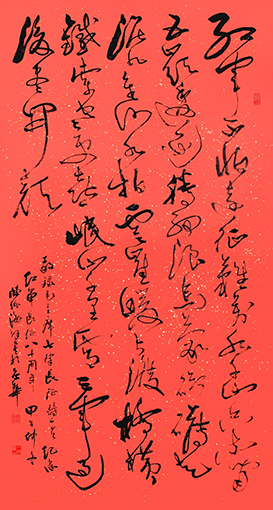 红军不怕远征难万水千山只等闲
五岭逶迤腾细浪乌蒙磅礴走
泥丸金沙水拍云崖暖大渡桥横
铁索寒更喜岷山千里雪三军过
后尽开颜
敬录毛主席七律长征诗一首纪念
红军长征八十周年